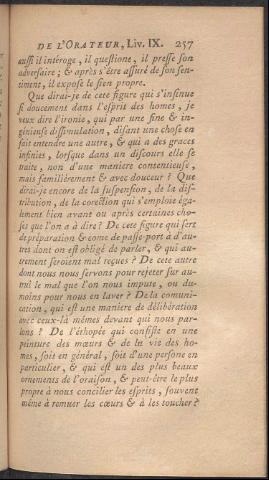 DE L'ORATEUR, Liv. IX. 257
aussi il intéroge, il questione, il presse son
adversaire; & après s'être assuré de son sen-
timent, il expose le sien propre.
Que dirai-je de cette figure qui s'insinue
si doucement dans l'esprit des homes, je
veux dire l'ironie, qui par une fine & in-
génieuse dissimulation, disant une chose en
fait entendre une autre, & qui a des graces
infinies, lorsque dans un discours elle se
traite, non d'une maniere contentieuse,
mais familiérement & avec douceur ? Que
dirai-je encore de la suspension, de la dis-
tribution, de la corection qui s'emploie éga-
lement bien avant ou après certaines cho-
ses que l'on a à dire ? De cette figure qui sert
de préparation & come de passe-port à d'au-
tres dont on est obligé de parler, & qui au-
trement seroient mal reçues ? De cette autre
dont nous nous servons pour rejeter sur au-
trui le mal que l'on nous impute, ou du-
moins pour nous en laver ? De la comuni-
cation, qui est une maniere de délibération
avec ceux-là mêmes devant qui nous par-
lons ? De l'éthopée qui consiste en une
peinture des mœurs & de la vie des ho-
mes, soit en général, soit d'une persone en
particulier, & qui est un des plus beaux
ornements de l'oraison, & peut-être le plus
propre à nous concilier les esprits, souvent
même à remuer les cœurs & à les toucher ?